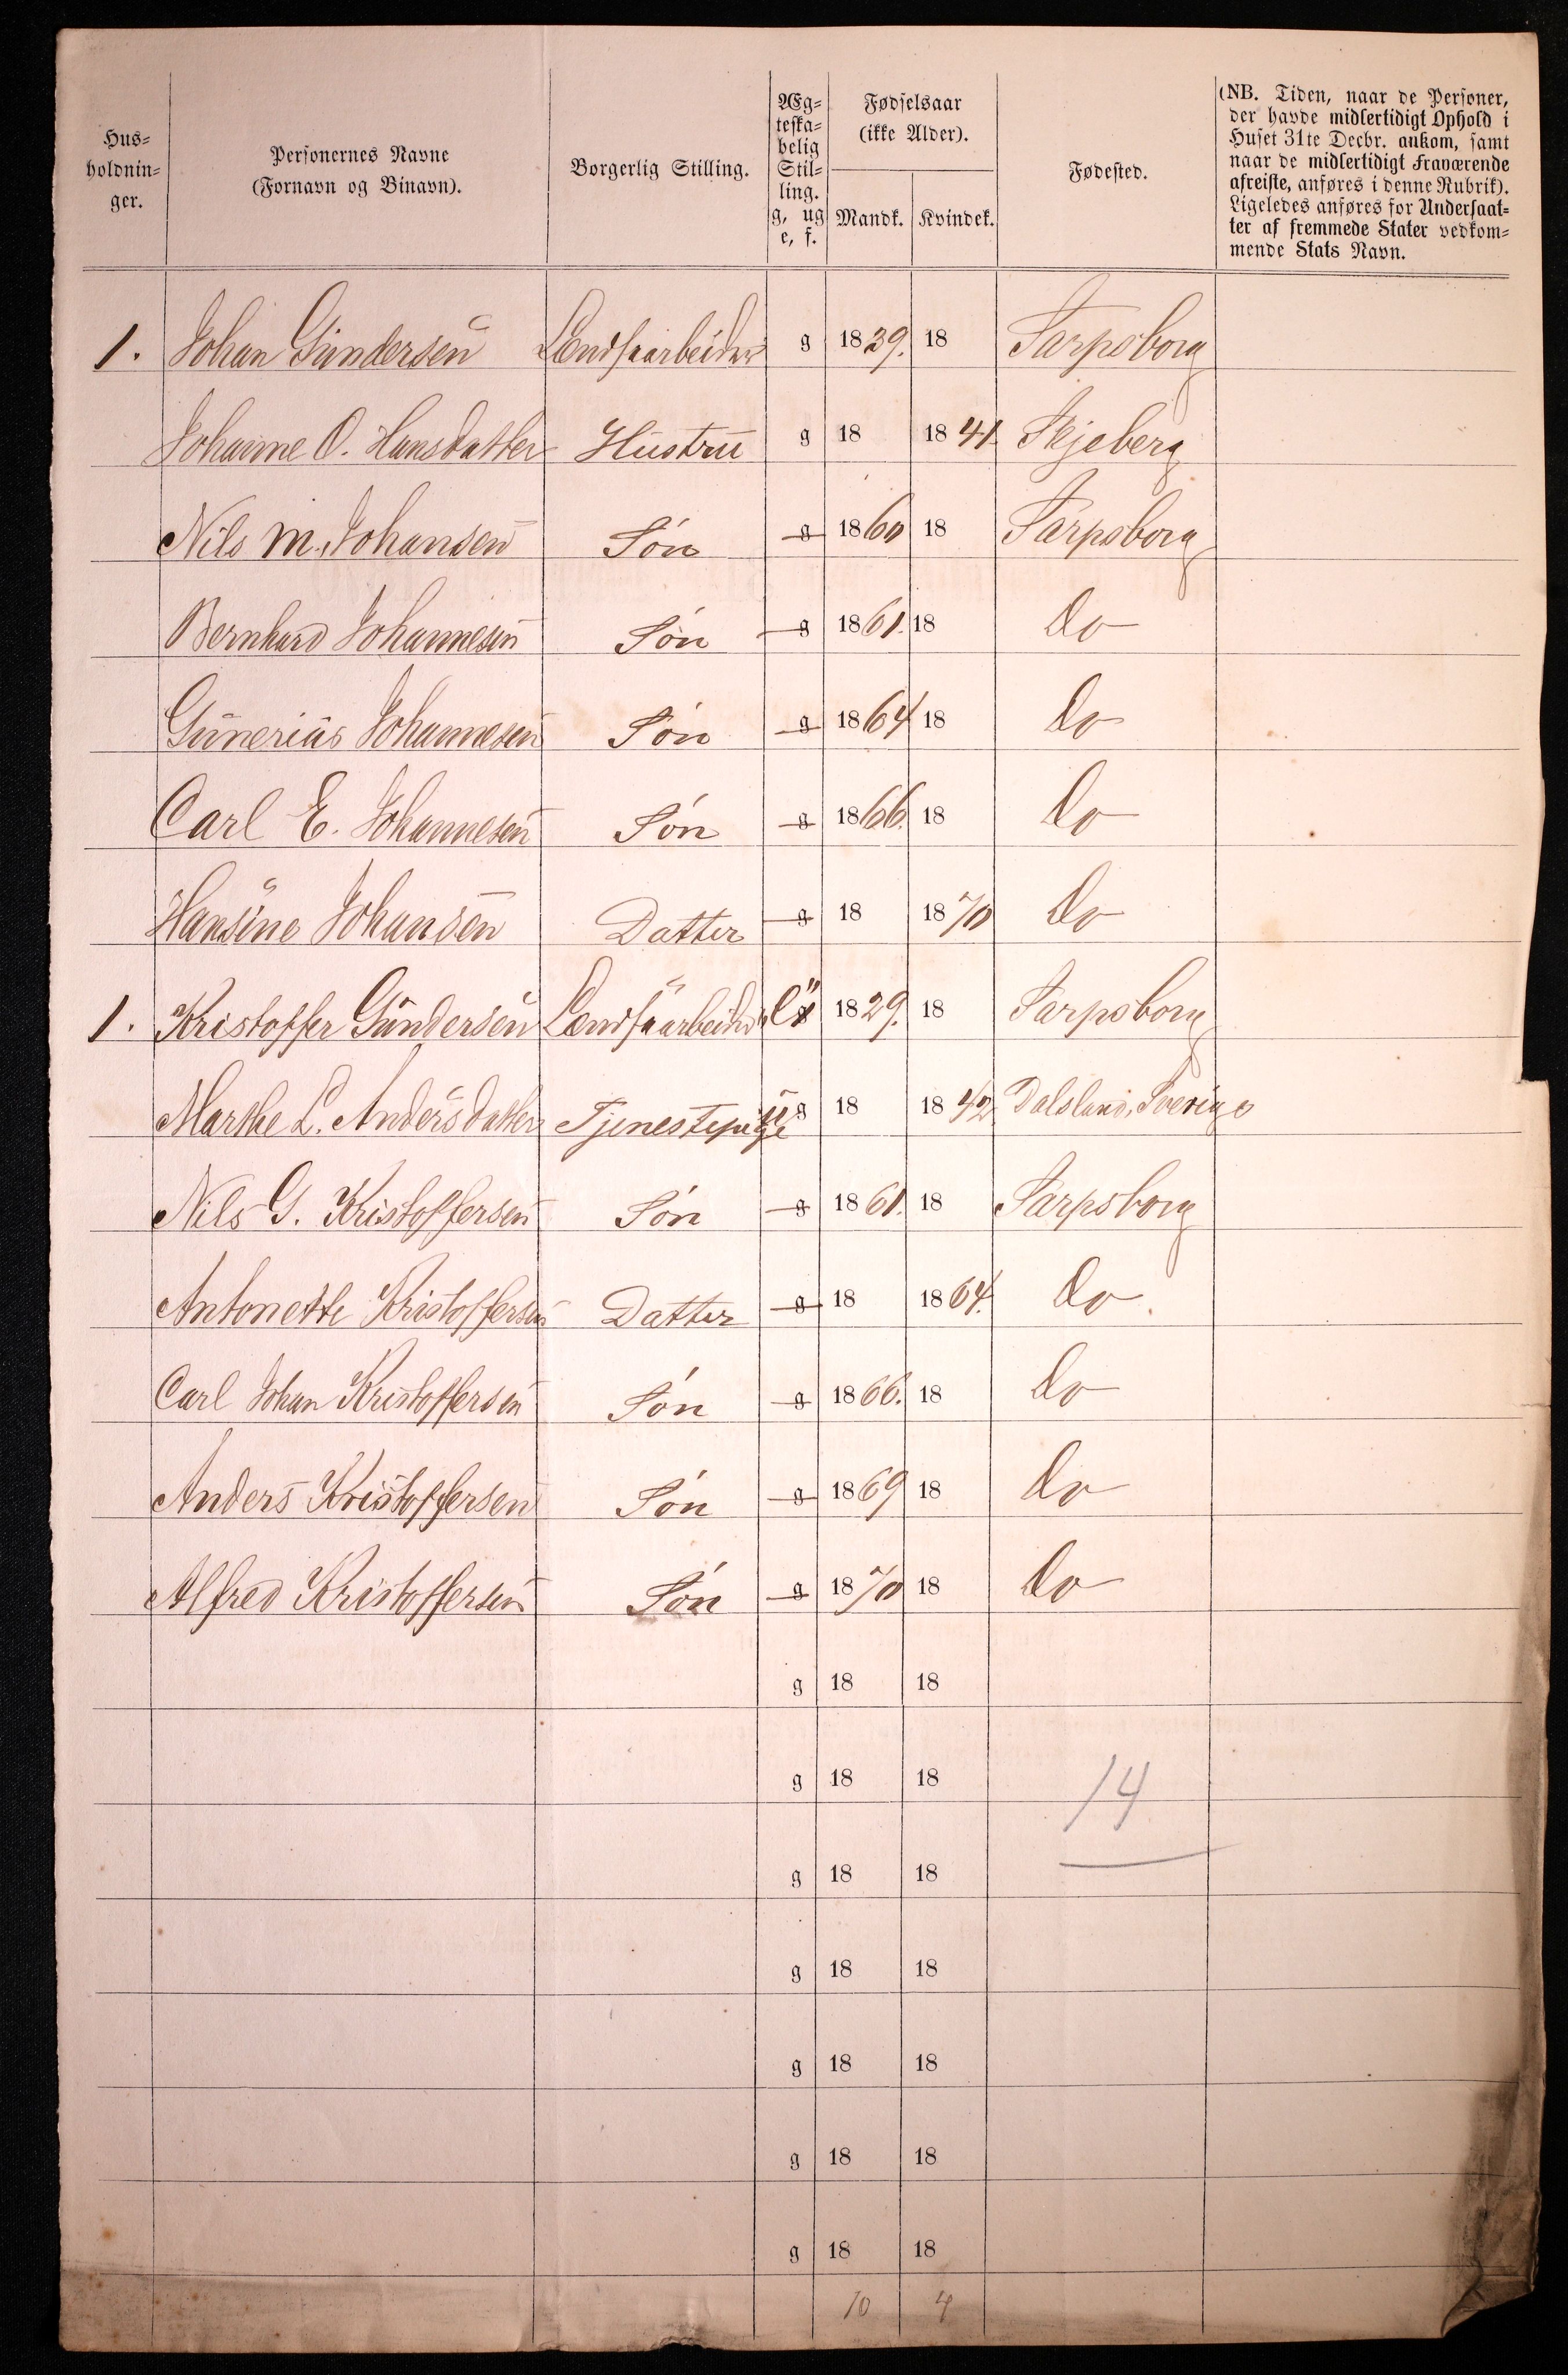 Hus=
holdnin=
ger.
Personernes Navne
(Fornavn og Binavn).
Borgerlig Stilling.
Æg=
teska=
belig
Stil=
ling.
g, ug
e, f.
Fødselsaar
(ikke Alder).
Mandk. Kvindek.
Fødested.
(NB. Tiden, naar de Personer,
der havde midlertidigt Ophold i
Huset 31te Decbr. ankom, samt
naar de midlertidigt Fraværende
afreiste, anføres i denne Rubrik).
Ligeledes anføres for Undersaat=
ter af fremmede Stater vedkom=
mende Stats Navn.
1. Johan Gundersen Lendsarbeider g 1839. 18 Sarpsborg
Johanne O. Hansdatter Hustru g 18 1841 Skjeberg
Nils M. Johansen Søn g 1860 18 Sarpsborg
Bernhard Johannesen Søn g 1861. 18 Do
Gunerius Johannesen Søn g 1864 18 Do
Carl E. Johannesen Søn g 1866. 18 Do
Hansine Johansen Datter g 18 1870 Do
1. Kristoffer Gundersen Lendsarbeider e 1829. 18 Sarpsborg
Marthe L. Andersdatter Tjenestepige ug 18 1842. Dalsland, Sverige
Nils G. Kristoffersen Søn g 1861. 18 Sarpsborg
Antonette Kristoffersen Datter g 18 1864. Do.
Carl Johan Kristoffersen Søn g 1866. 18 Do
Anders Kristoffersen Søn g 1869 18 Do
Alfred Kristoffersen Søn g 1870 18 Do
g 18 18
g 18 18 14
g 18 18
g 18 18
g 18 18
g 18 18
g 18 18
10 4